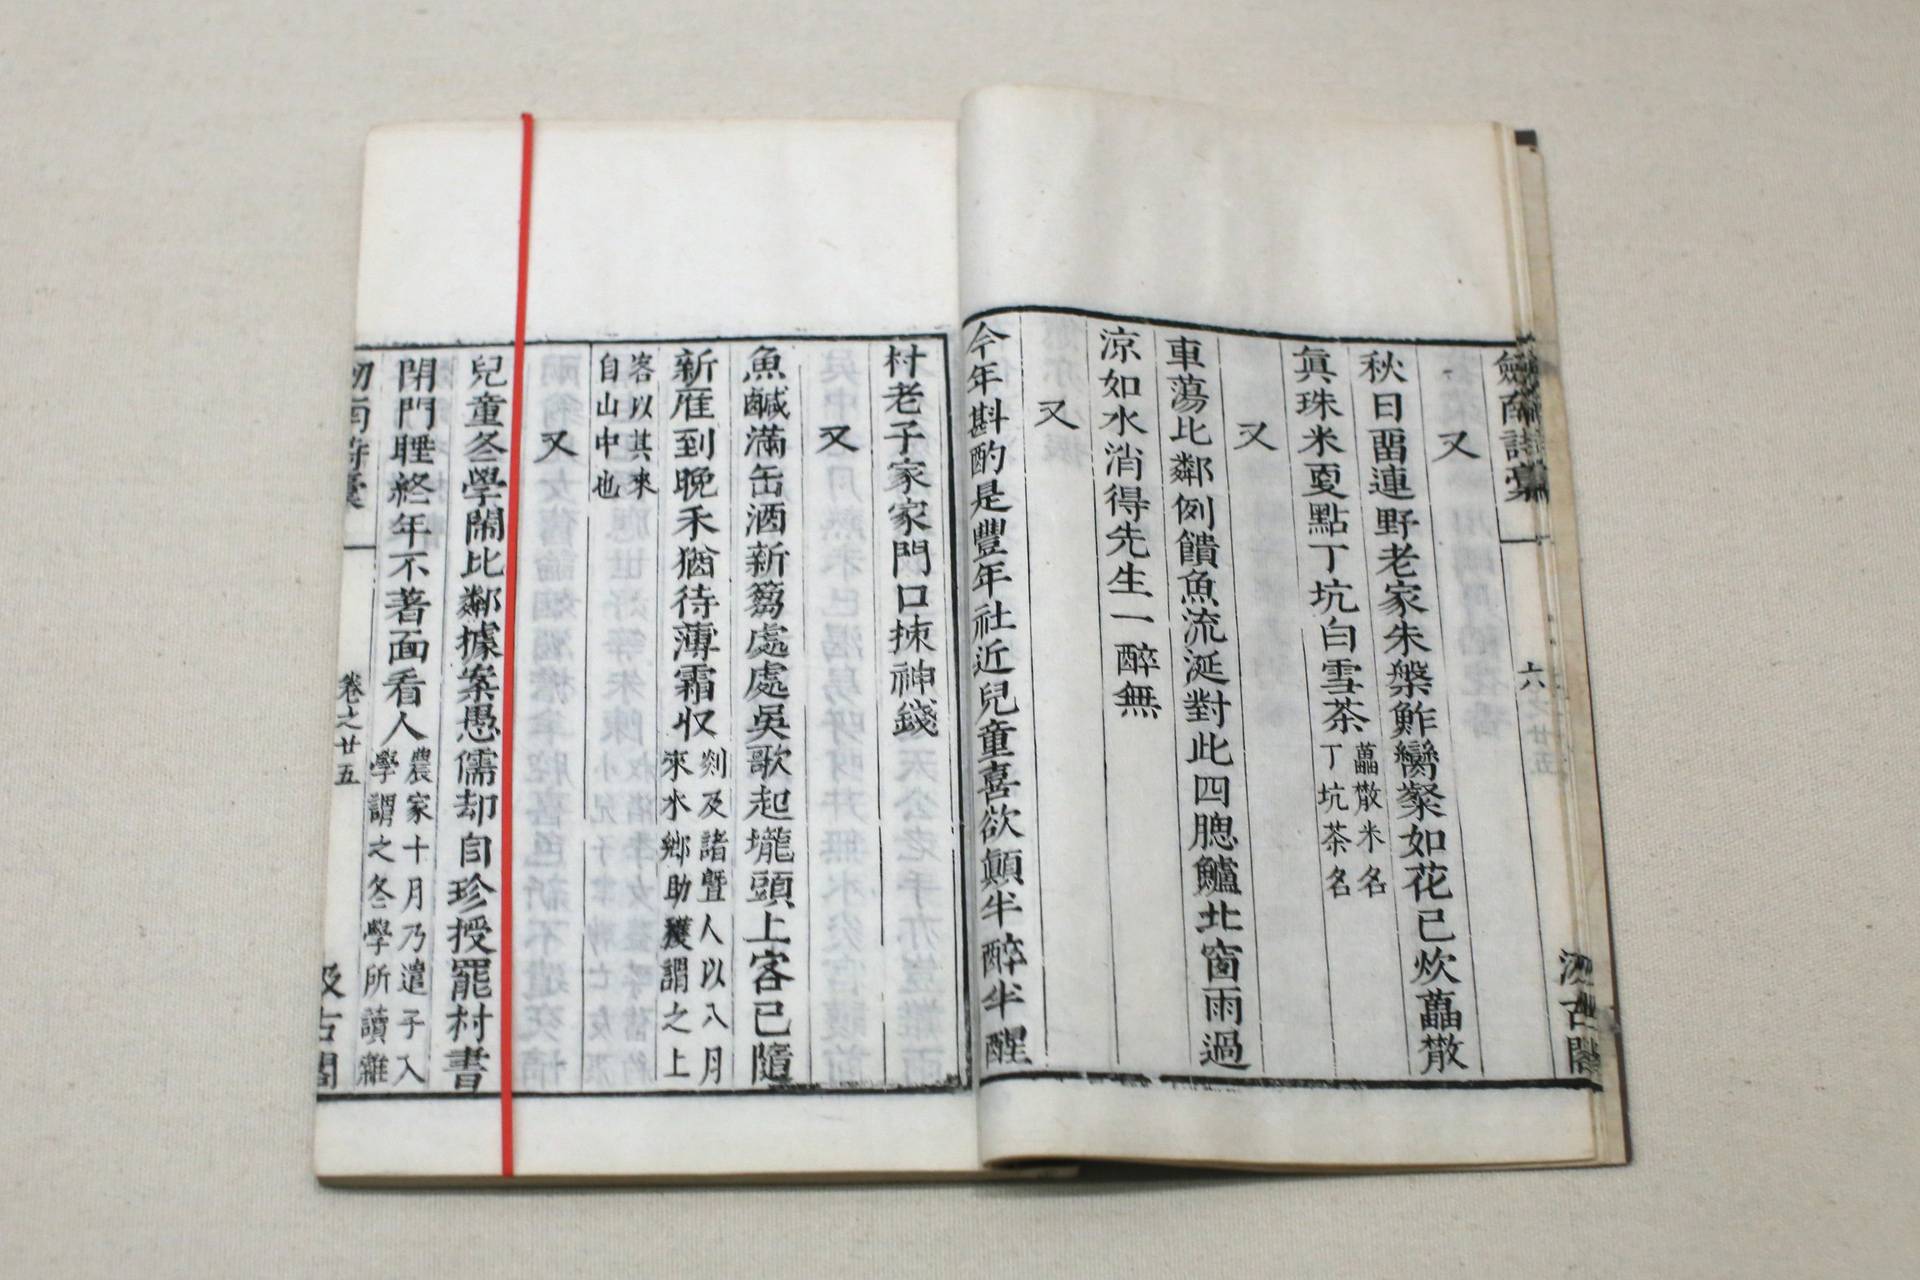 劍南詩稾
六
汲古閣
又
秋日畱連野老家朱槃鮓臠粲如花已炊藠䉼
眞珠米夏點丁坑白雪茶藠䉼米名
丁坑茶名
又
車蕩比鄰例饋魚流涎對此四腮鱸北窗雨過
涼如水消得先生一醉無
又
今年斟酌是豐年社近兒童喜欲顛半醉半醒
村老子家家門口掠神錢
又
魚鹹滿缶酒新篘處處吳歌起壠頭上客已隨
新雁到晚禾猶待薄霜収剡及諸曁人以八月
來水鄉助穫謂之上
客以其來
自山中也
又
兒童冬學鬧比鄰據案愚儒却自珍授罷村書
閉門睡終年不著面看人農家十月乃遣子入
學謂之冬學所讀雜
卷之廿五
汲古閣